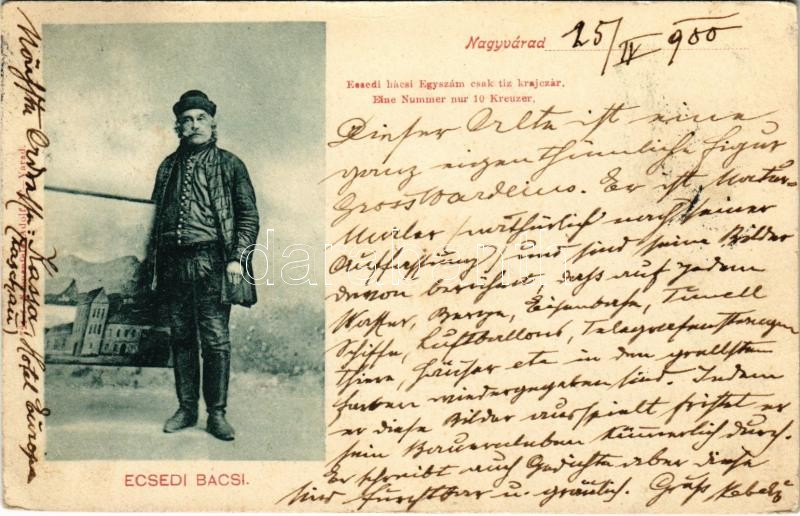 Nagyvárad 25/IV 900
Ecsedi bácsi Egyszám csak tiz krajczár.
Eine Nummer nur 10 Kreuzer.
Dieser Alte ist eine
ganz eigenthümliche Figur
Grosswardeins. Er ist Natur-
Maler (natürlich nach seiner
Auffassung) und sind seine Bilder
davon dass auf jedem
Wasser, Berge, Eisenbahn, Tunell
Schiffe, Luftballons, Telegrafenstangen
Thiere, Häuser etc in den grellsten
Farben wiedergegeben sind. Indem
er diese Bilder ausspielt fristet er
sein Bauernleben kümmerlich durch.
Er schreibt auch Gedichte aber diese
sind furchtbar u. gräulich. Gruss
Nächste Adresse: Kassa, Hotel Europa
(Kaschau)
ECSEDI BÁCSI.
darabanth